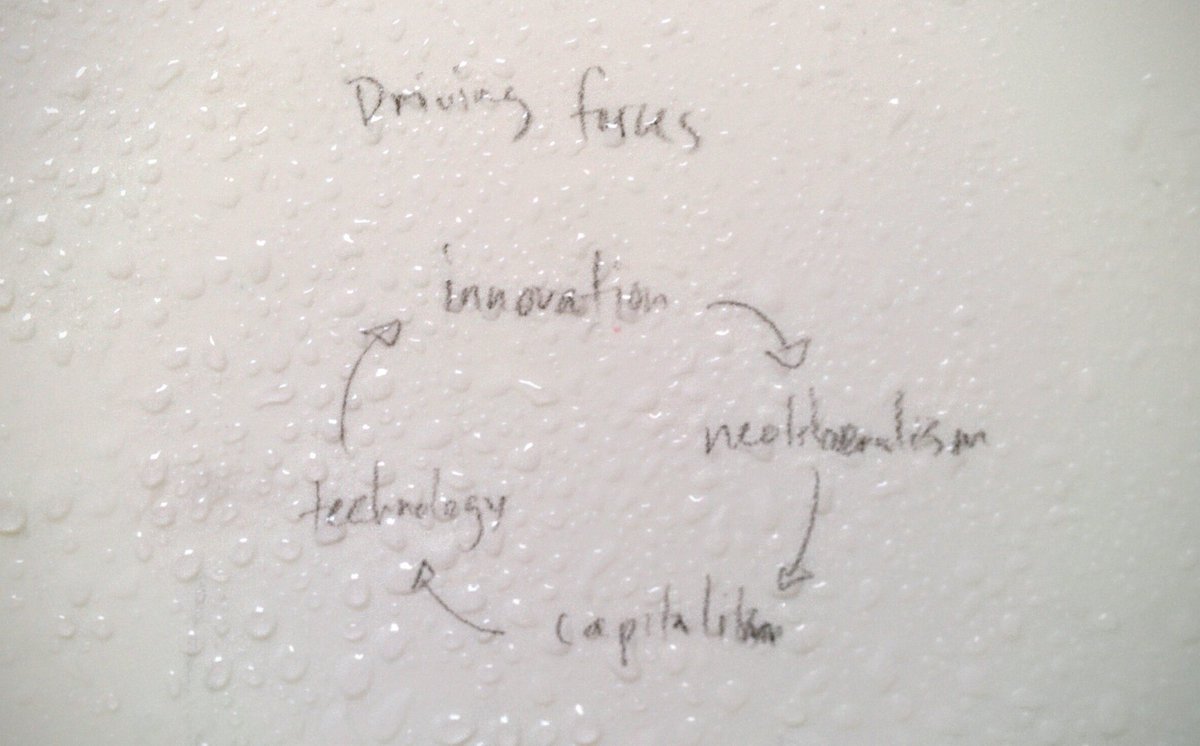 Driving forces
innovation
neoliberalism
technology
capitalism